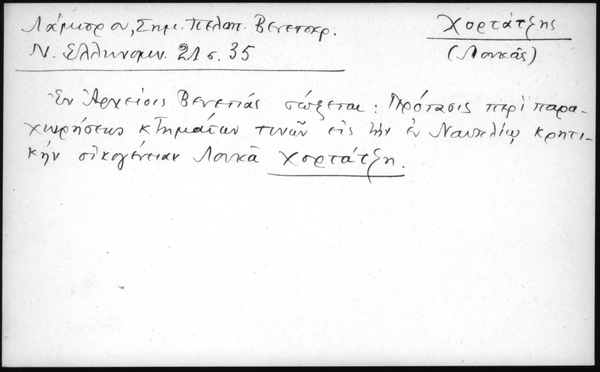 Λάμπρου, Σημ. Πελοπ. Βενετοκρ.
Ν. Ελληνομν. 21 σ. 35
Χορτάτζης
(Λουκᾶς)
Ἐν Ἀρχείοις Βενετίας σώζεται: Πρότασις περὶ παρα-
χωρήσεως κτημάτων τινῶν εἰς τὴν ἐν Ναυπλίῳ κρητι-
κήν οἰκογένειαν Λουκᾶ Χορτάτζη.